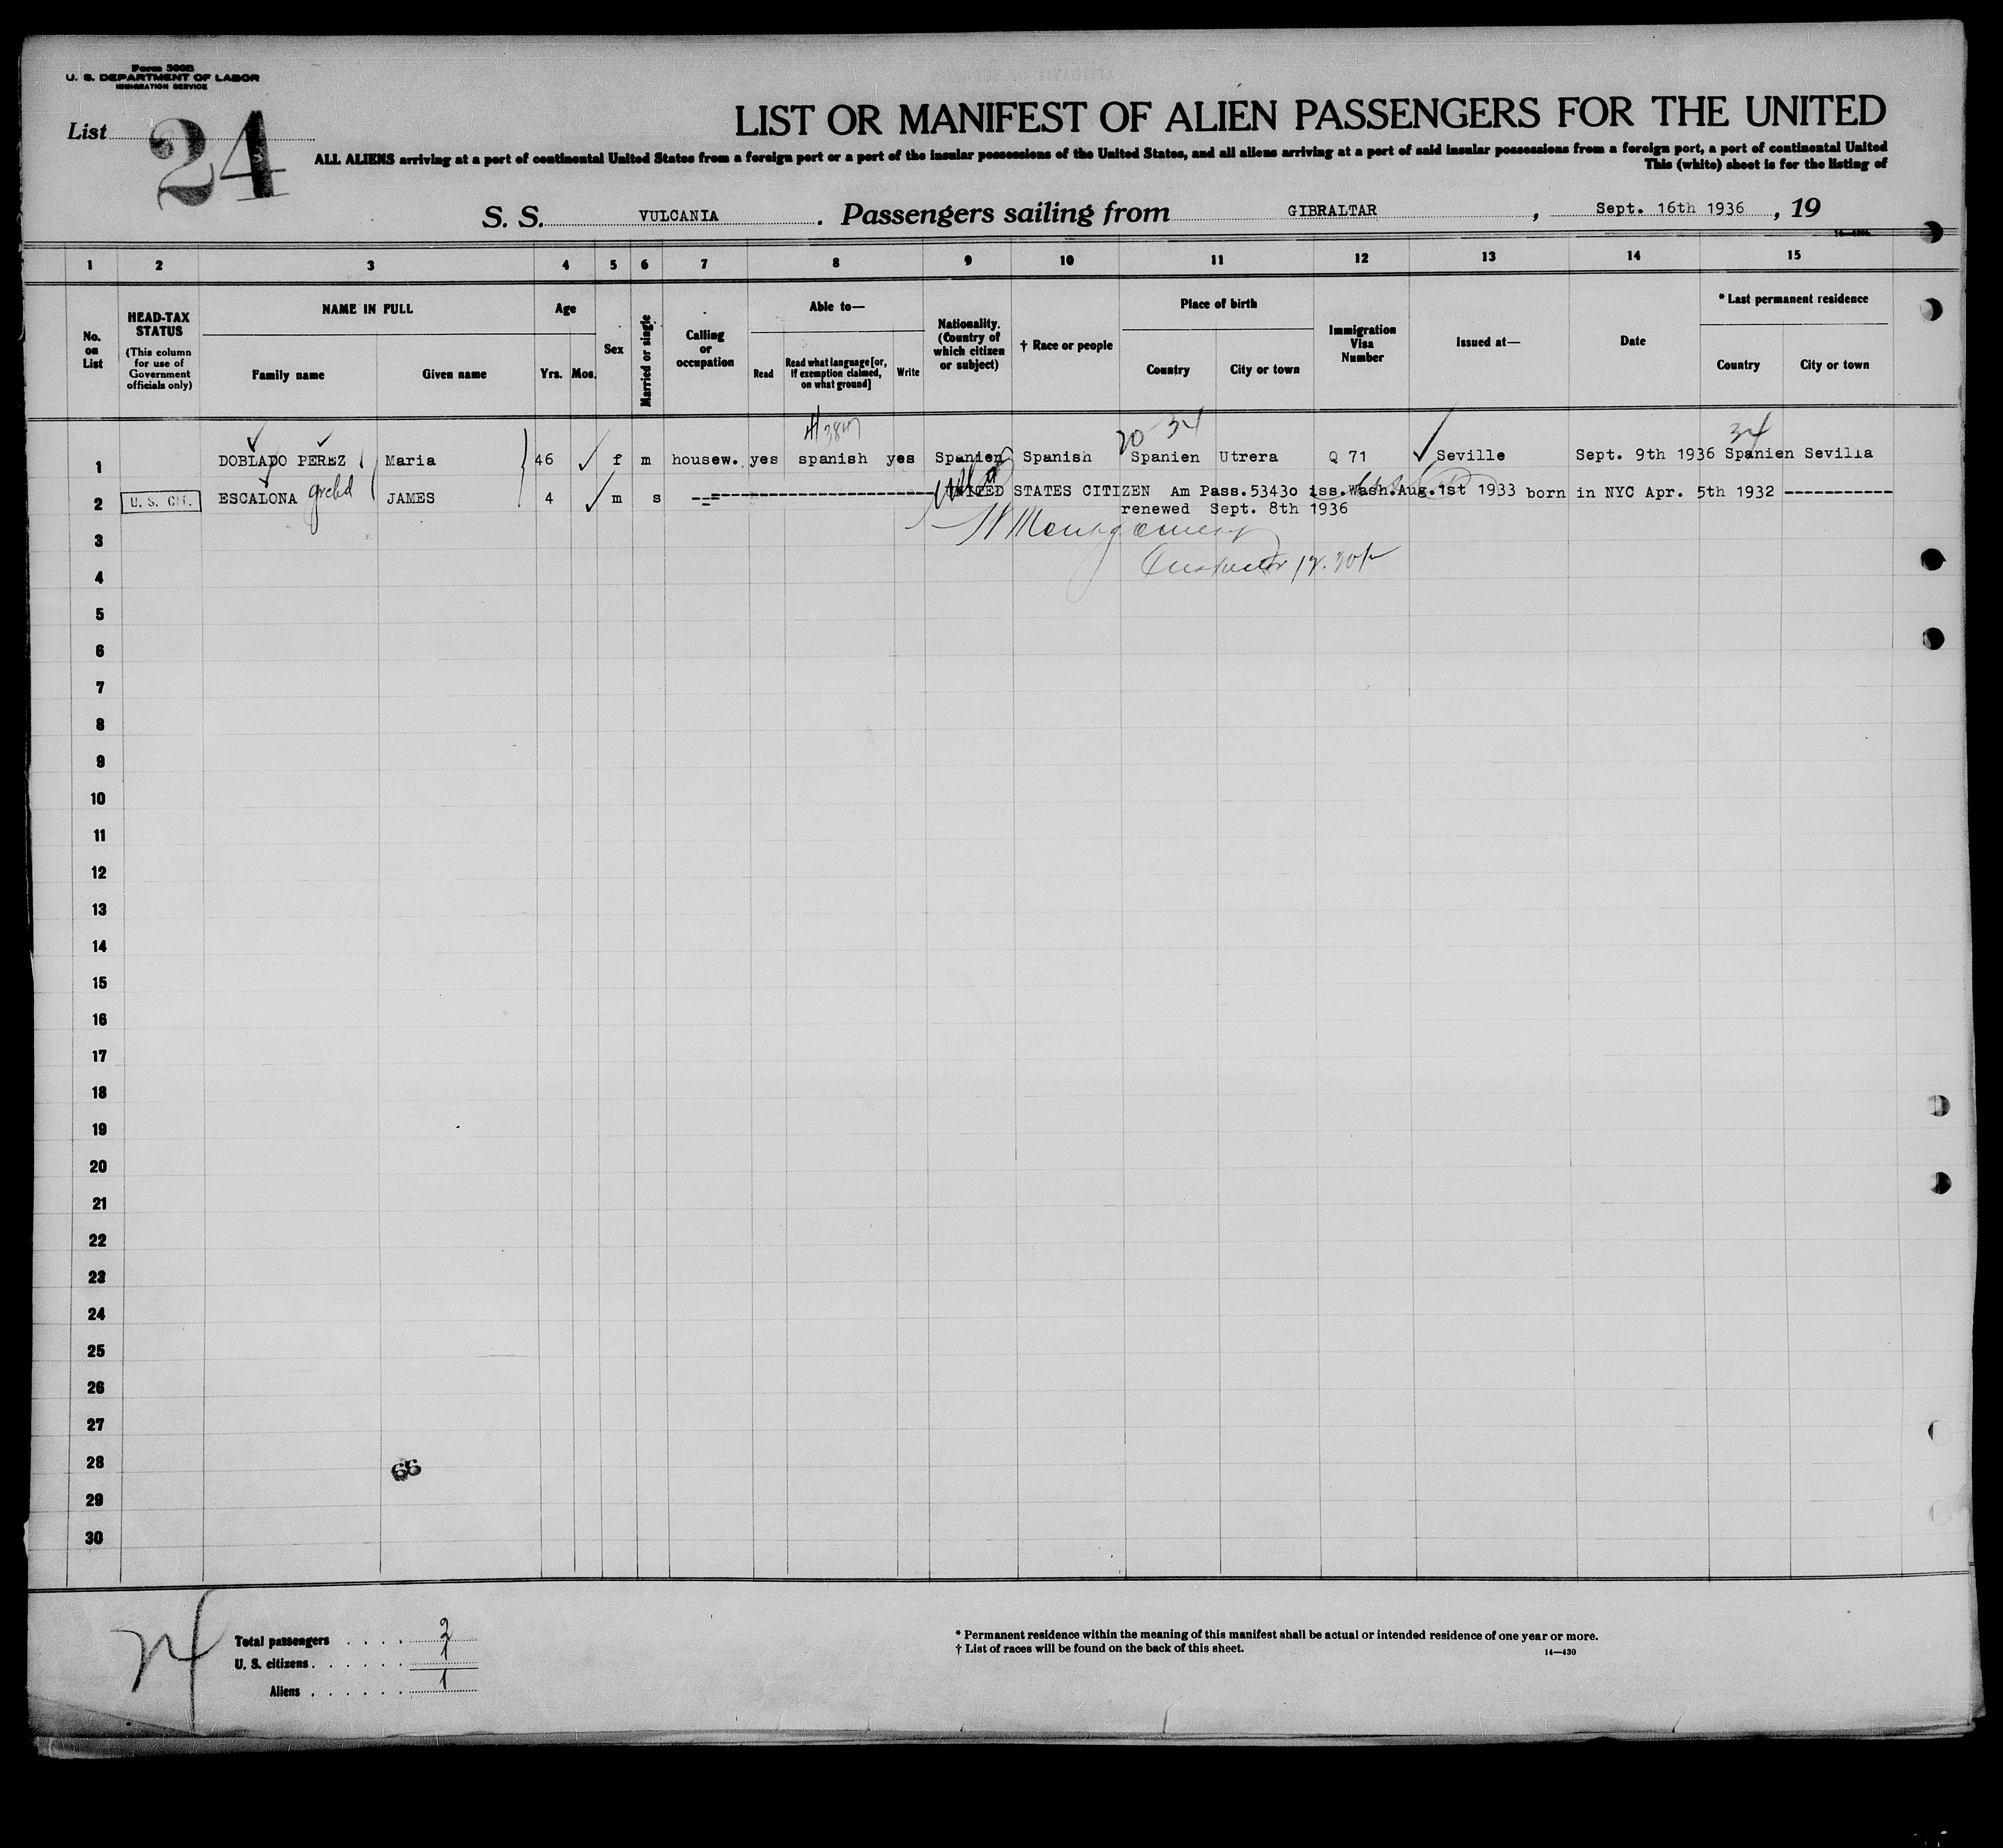 Form 500B
U. S. DEPARTMENT OF LABOR
IMMIGRATION SERVICE
List 24
LIST OR MANIFEST OF ALIEN PASSENGERS FOR THE UNITED
ALL ALIENS arriving at a port of continental United States from a foreign port or a port of the insular possessions of the United States, and all aliens arriving at a port of said insular possessions from a foreign port, a port of continental United
This (white) sheet is for the listing of
S. S. VULCANIA . Passengers sailing from GIBRALTAR , Sept. 16th 1936 , 19
1 2 3 4 5 6 7 8 9 10 11 12 13 14 15
No. on List
HEAD-TAX STATUS (This column for use of Government officials only)
NAME IN FULL
Family name Given name
Age
Yrs. Mos.
Sex
Married or single
Calling or occupation
Able to—
Read Read what language [or, if exemption claimed, on what ground] Write
Nationality. (Country of which citizen or subject)
† Race or people
Place of birth
Country City or town
Immigration Visa Number
Issued at—
Date
* Last permanent residence
Country City or town
20 34 34
1 DOBLADO PEREZ Maria 46 f m housew. yes spanish yes Spanien Spanish Spanien Utrera Q 71 Seville Sept. 9th 1936 Spanien Sevilla
2 U. S. CIT. ESCALONA grchd JAMES 4 m s UNITED STATES CITIZEN Am Pass.53430 iss.Wash.Aug.1st 1933 born in NYC Apr. 5th 1932
renewed Sept. 8th 1936
3 Montgomery
4 Inspector
5
6
7
8
9
10
11
12
13
14
15
16
17
18
19
20
21
22
23
24
25
26
27
28 66
29
30
24
Total passengers . . . . 2
U. S. citizens . . . . . . 1
Aliens . . . . . . 1
* Permanent residence within the meaning of this manifest shall be actual or intended residence of one year or more.
† List of races will be found on the back of this sheet.
14—430